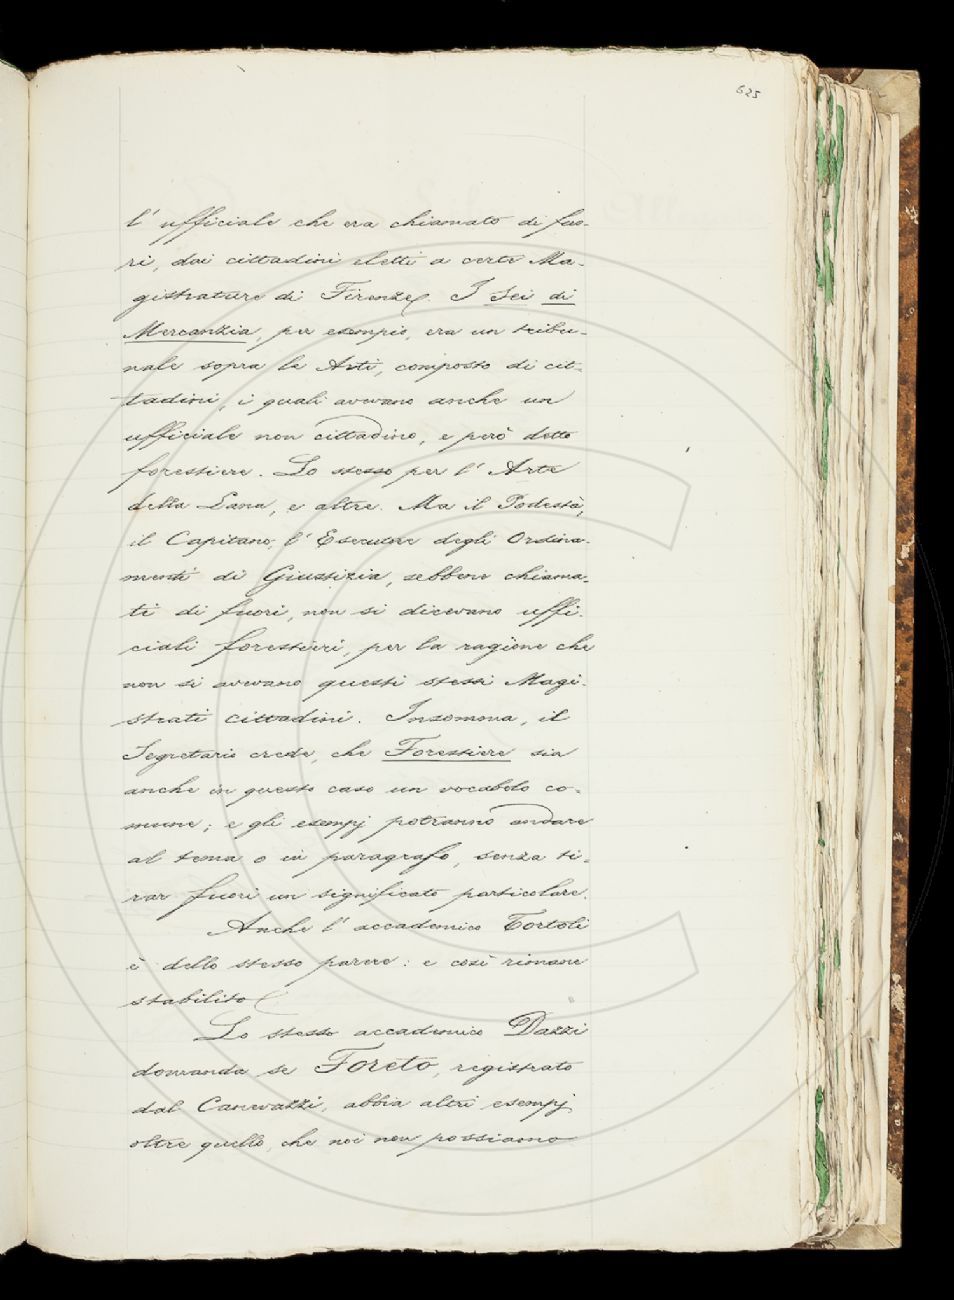 625
l' ufficiale che era chiamato di fuo-
ri, dai cittadini eletti a certe Ma-
gistrature di Firenze. I Sei di
Mercanzia, per esempio, era un tribu-
nale sopra le Arti, composto di cit-
tadini, i quali avevano anche un
ufficiale non cittadino, e però detto
forestiere. Lo stesso per l' Arte
della Lana, e altre. Ma il Podestà,
il Capitano, l' Esecutore degli Ordina-
menti di Giustizia, sebbene chiama-
ti di fuori, non si dicevano uffi-
ciali forestieri, per la ragione che
non si avevano questi stessi Magi-
strati cittadini. Insomma, il
Segretario crede, che Forestiere sia
anche in questo caso un vocabolo co-
mune; e gli esempj potranno andare
al tema o in paragrafo, senza ti-
rar fuori un significato particolare.
Anche l' accademico Tortoli
è dello stesso parere: e così rimane
stabilito
Lo stesso accademico Dazzi
domanda se Foreto, registrato
dal Canevazzi, abbia altri esempj
oltre quello, che noi non possiamo